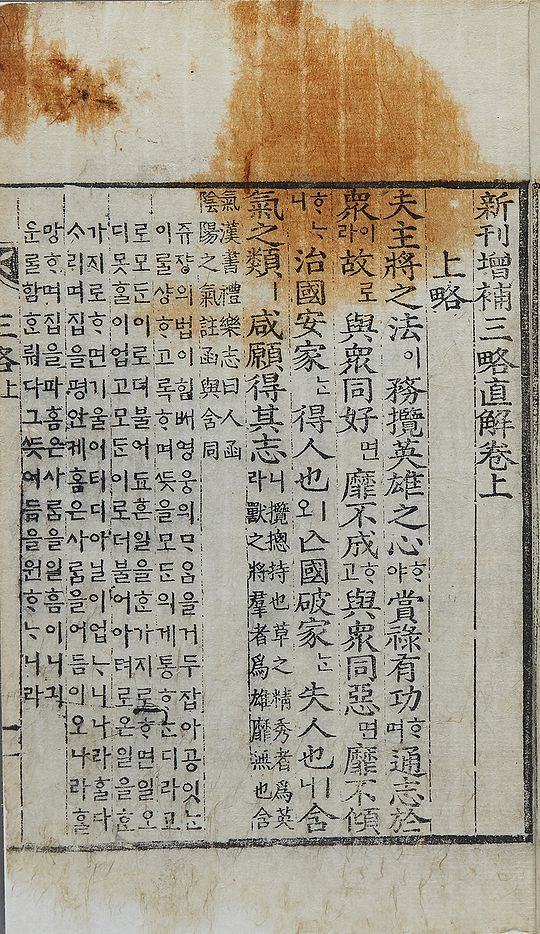 新刊增補三略直解卷上
上略
夫主將之法이務攬英雄之心ᄒᆞ야賞祿有功ᄒᆞ며通志於
衆이라故로與衆同好면靡不成ᄒᆞ고與衆同惡면靡不傾
ᄒᆞᄂᆞ니治國安家ᄂᆞᆫ得人也오亡國破家ᄂᆞᆫ失人也니含
氣之類ㅣ咸願得其志니라攬摠持也草之精秀者爲英
獸之將羣者爲雄靡無也含
氣漢書禮樂志曰人函
陰陽之氣註函與含同
쥬쟝의법이힘ᄡᅥ영웅의ᄆᆞᄋᆞᆷ을거두잡아공잇ᄂᆞᆫ
이ᄅᆞᆯ샹ᄒᆞ고록ᄒᆞ며ᄯᅳᆺ을모ᄃᆞᆫ의게통ᄒᆞᄂᆞᆫ디라고
로모ᄃᆞᆫ이로더불어됴흔일을ᄒᆞᆫ가지로ᄒᆞ면일오
디못ᄒᆞᆯ이업고모ᄃᆞᆫ이로더불어아텨로온일을ᄒᆞᆫ
가지로ᄒᆞ면기울이디아닐이업ᄂᆞ니나라ᄒᆞᆯ다
ᄉᆞ리며집을평안케홈은사ᄅᆞᆷ을어듬이오나라ᄒᆞᆯ
망ᄒᆞ며집을파홈은사ᄅᆞᆷ을일흠이니긔
운을함ᄒᆞᆫ뤼다그ᄯᅳᆺ어듬을원ᄒᆞᄂᆞ니라
三略上
一